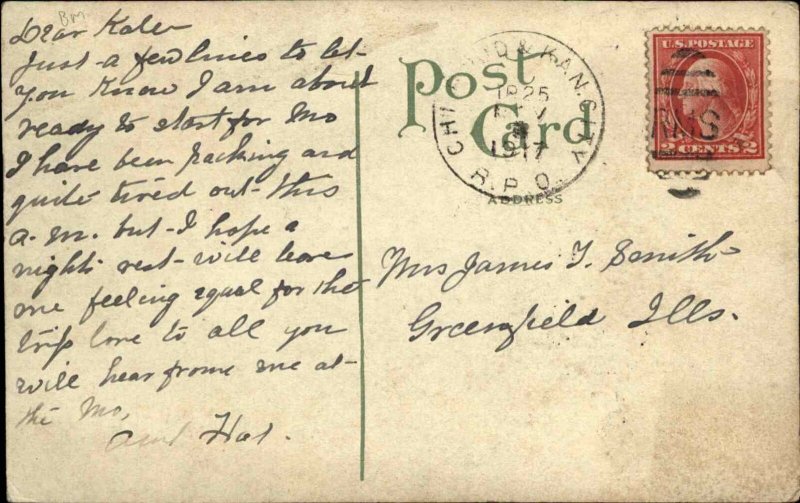 BM
Dear Kate
Just a few lines to let
you know I am about
ready to start for Mo
I have been packing and
quite tired out this
a.m. but I hope a
nights rest will leave
me feeling equal for the
trip love to all you
will hear frome me at
the Mo,
Aunt Hat.
Post
Card
ADDRESS
Mrs James T. Smith
Greenfield Ills.
& KAN. CITY
1917
R.P.O.
U.S. POSTAGE
RMS
2 CENTS 2